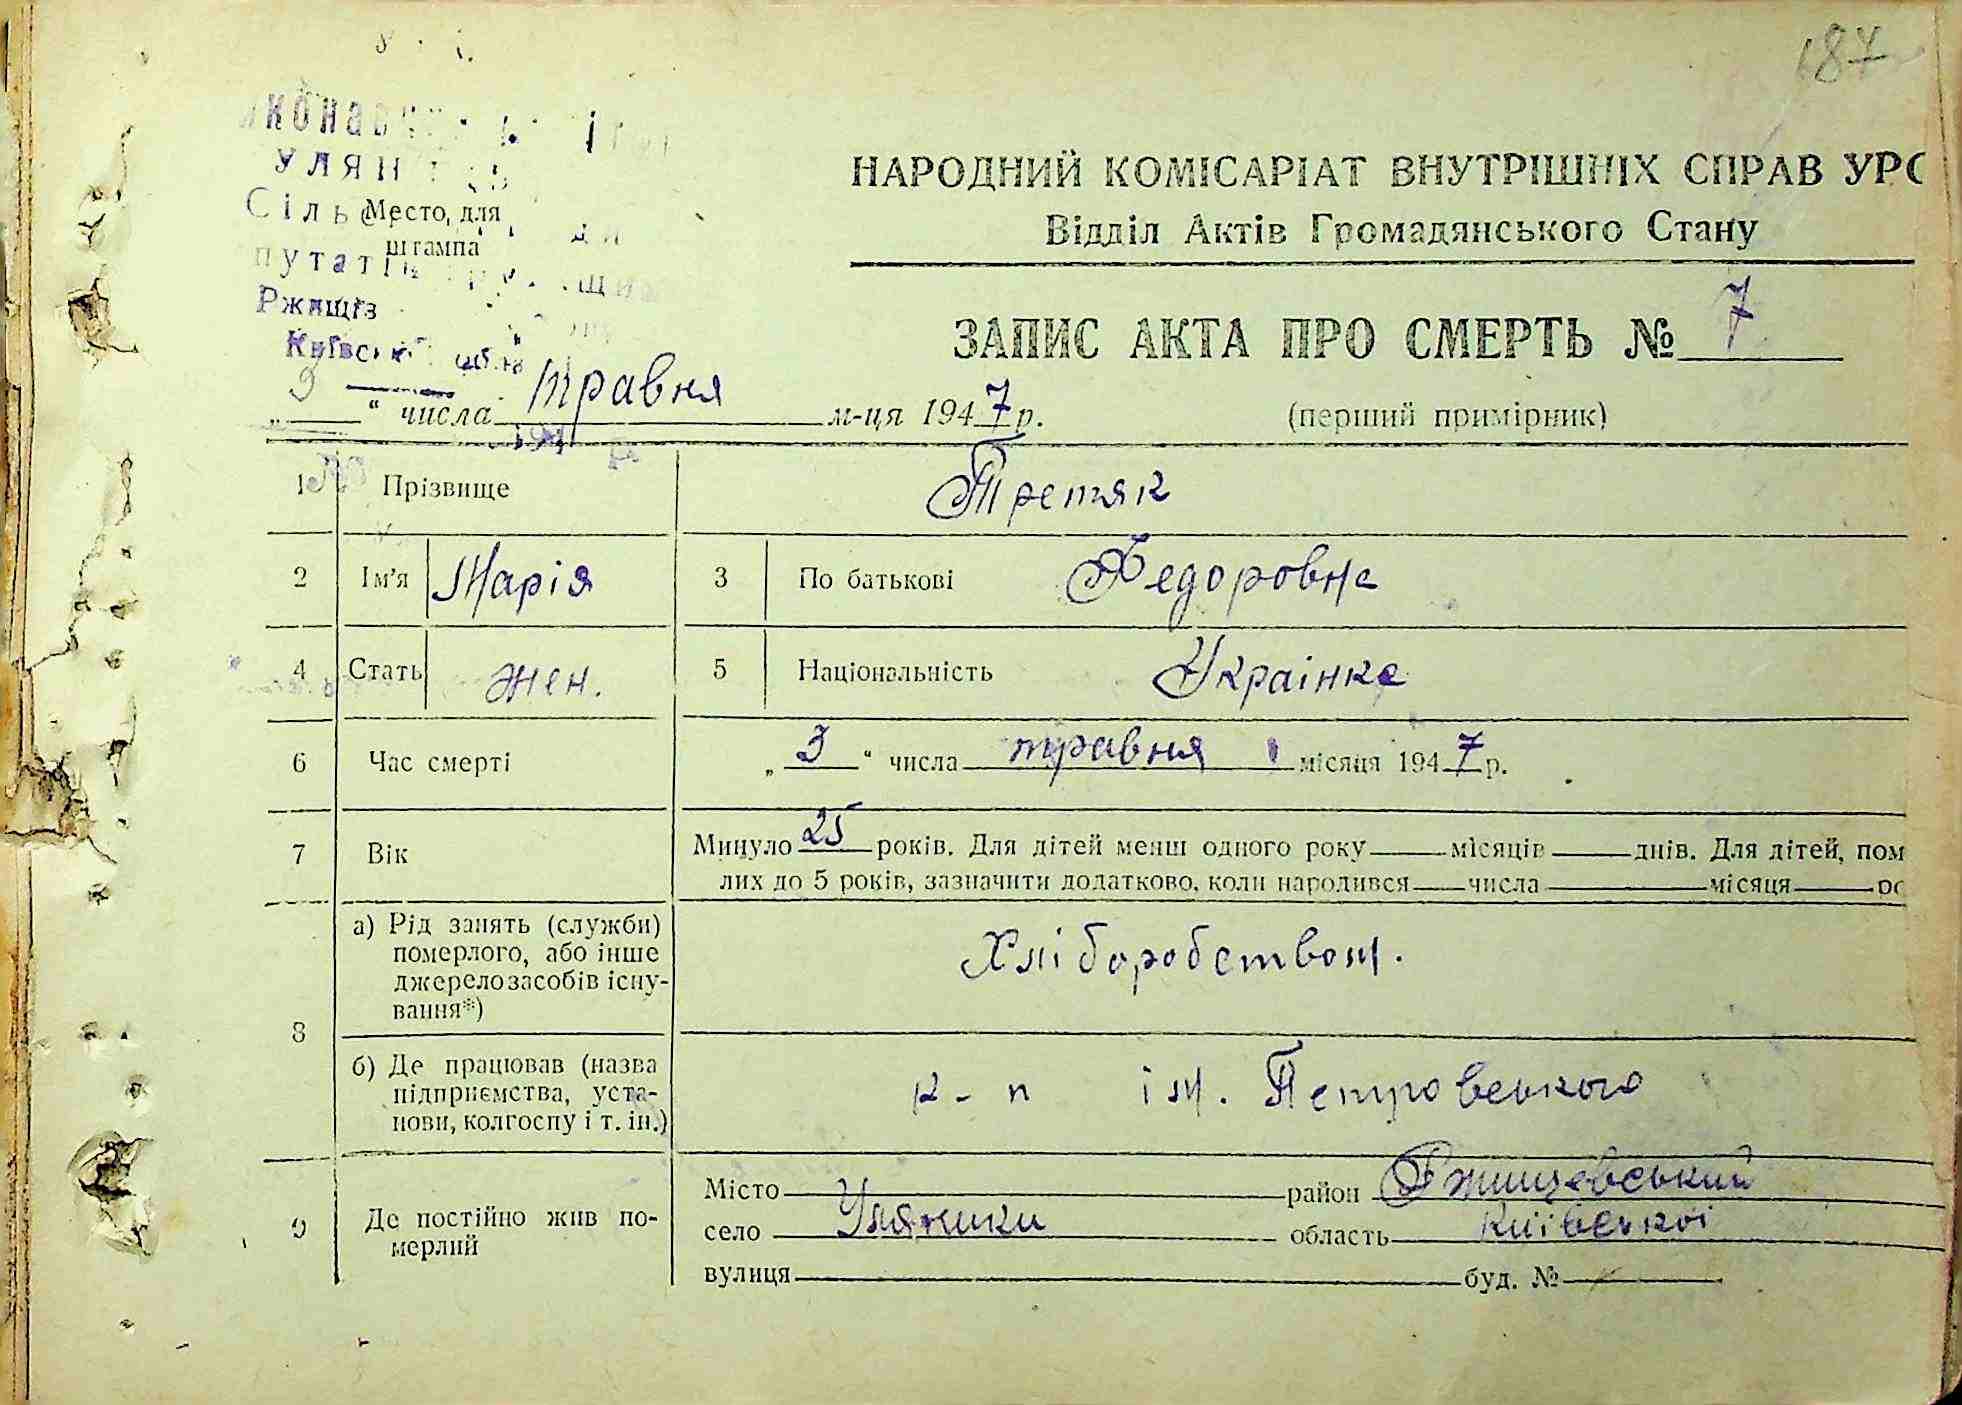 187
УЛЯН
Сіль
Место для
штампа
путат
Ржищів
Київськ
НАРОДНИЙ КОМІСАРІАТ ВНУТРІШНІХ СПРАВ УРС
Відділ Актів Громадянського Стану
ЗАПИС АКТА ПРО СМЕРТЬ № 7
„ 3 “ числа травня м-ця 1947 р.
(перший примірник)
1 Прізвище Третяк
2 Ім'я Марія 3 По батькові Федоровна
4 Стать жен. 5 Національність Українка
6 Час смерті „ 3 “ числа травня місяця 1947 р.
7 Вік Минуло 25 років. Для дітей менш одного року місяців днів. Для дітей, пом
лих до 5 років, зазначити додатково, коли народився числа місяця
8 а) Рід занять (служби)
померлого, або інше
джерело засобів існу-
вання*)
Хліборобством.
б) Де працював (назва
підприємства, уста-
нови, колгоспу і т. ін.)
к-п ім. Петровського
9 Де постійно жив по-
мерлий
Місто район Ржищевський
село Уляники область Київської
вулиця буд. №